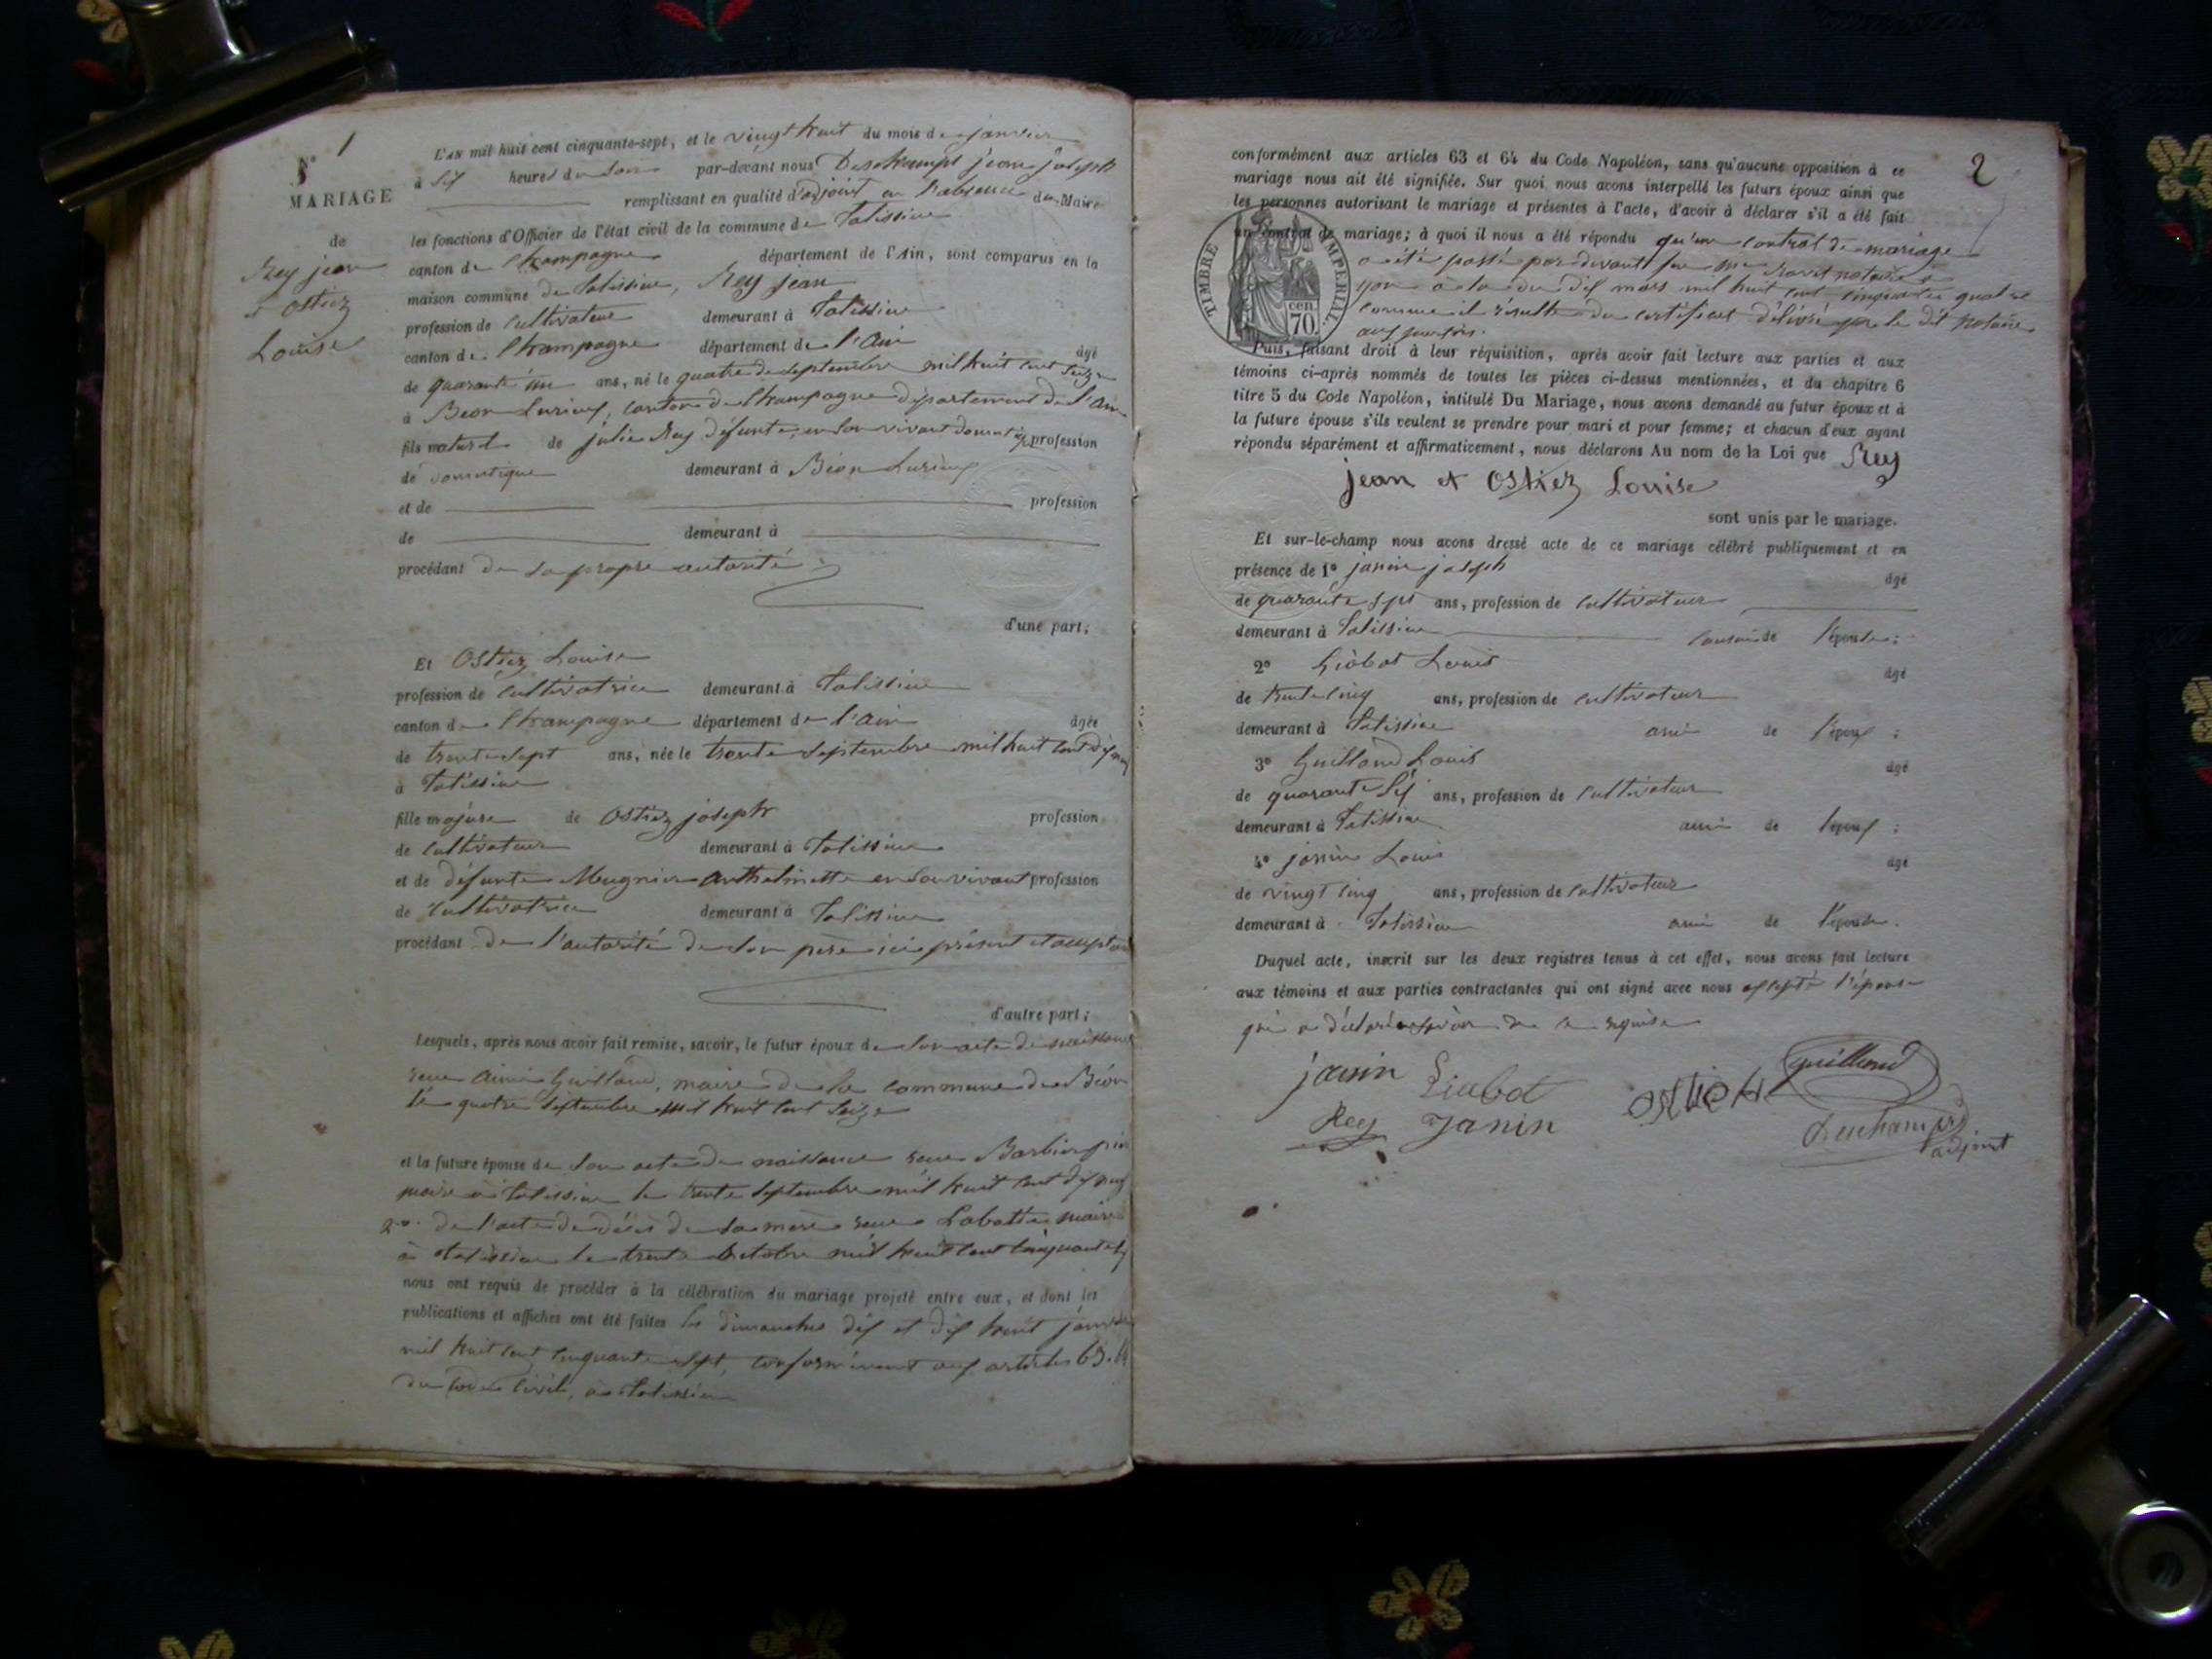 N° 1
MARIAGE
de
Rey jean
et Ostiez
Louise
L'AN mil huit cent cinquante-sept, et le vingt huit du mois de janvier
à six heures du soir par-devant nous Deschamps jean joseph
remplissant en qualité d'adjoint en l'absence du Maire
les fonctions d'Officier de l'état civil de la commune de Talissieu
canton de Champagne département de l'Ain, sont comparus en la
maison commune de Talissieu, Rey jean
profession de cultivateur demeurant à Talissieu
canton de Champagne département de l'ain âgé
de quarante ans, né le quatre de septembre mil huit cent seize
à Béon Luyrieux, canton de Champagne département de l'ain
fils naturel de julie Rey défunte, en son vivant profession
de domestique demeurant à Béon
et de profession
de demeurant à
procédant de sa propre autorité
d'une part;
Et Ostiez Louise
profession de cultivatrice demeurant à Talissieu
canton de Champagne département de l'ain âgée
de trente sept ans, née le trente septembre mil huit cent dix neuf
à Talissieu
fille majeure de Ostiez joseph profession
de cultivateur demeurant à Talissieu
et de défunte Mugnier Anthelmette en son vivant profession
de cultivatrice demeurant à Talissieu
procédant de l'autorité de son père ici présent et acceptant
d'autre part;
Lesquels, après nous avoir fait remise, savoir, le futur époux de son acte de naissance
reçu Aimé Guilland, maire de la commune de Béon
le quatre septembre mil huit cent seize
et la future épouse de son acte de naissance reçu Barbier
maire à talissieu le trente septembre mil huit cent dix neuf
2° de l'acte de décès de sa mère reçu Labatie maire
à talissieu le trente octobre mil huit cent cinquante
nous ont requis de procéder à la célébration du mariage projeté entre eux, et dont les
publications et affiches ont été faites les dimanches dix et dix huit janvier
mil huit cent cinquante sept, conformément aux articles 63. 64
du code Civil, à Talissieu
2
conformément aux articles 63 et 64 du Code Napoléon, sans qu'aucune opposition à ce
mariage nous ait été signifiée. Sur quoi nous avons interpellé les futurs époux ainsi que
les personnes autorisant le mariage et présentes à l'acte, d'avoir à déclarer s'il a été fait
un contrat de mariage; à quoi il nous a été répondu qu'un contrat de mariage
TIMBRE IMPERIAL
cen. 70.
a été passé par devant notaire
à la du dix mars mil huit cent cinquante quatre
comme il résulte du certificat délivré par le dit notaire
Puis, faisant droit à leur réquisition, après avoir fait lecture aux parties et aux
témoins ci-après nommés de toutes les pièces ci-dessus mentionnées, et du chapitre 6
titre 5 du Code Napoléon, intitulé Du Mariage, nous avons demandé au futur époux et à
la future épouse s'ils veulent se prendre pour mari et pour femme; et chacun d'eux ayant
répondu séparément et affirmativement, nous déclarons Au nom de la Loi que Rey
jean et Ostiez Louise
sont unis par le mariage.
Et sur-le-champ nous avons dressé acte de ce mariage célébré publiquement et en
présence de 1° janin joseph âgé
de quarante sept ans, profession de cultivateur
demeurant à Talissieu cousin de l'épouse;
2° Giabot Louis âgé
de trente cinq ans, profession de cultivateur
demeurant à Talissieu ami de l'époux;
3° Guilland Louis âgé
de quarante six ans, profession de cultivateur
demeurant à Talissieu ami de l'époux;
4° janin Louis âgé
de vingt cinq ans, profession de cultivateur
demeurant à Talissieu ami de l'épouse.
Duquel acte, inscrit sur les deux registres tenus à cet effet, nous avons fait lecture
aux témoins et aux parties contractantes qui ont signé avec nous excepté l'épouse
qui a déclaré ne savoir de ce requise
janin Giabot Guilland
Rey Janin Deschamps
adjoint